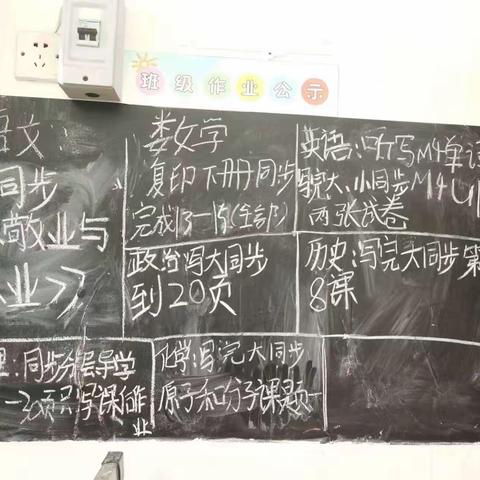 班级作业公示
语文:
同步
敬业与
业》
数学
复印下册同步
完成13-15(全部)
英语:听写M4单词
写完大、小同步M4U1
两张试卷
政治写大同步
到20页
历史:写完大同步第
8课
理:同步分层导学
化学:写完大同步
原子和分子课题一